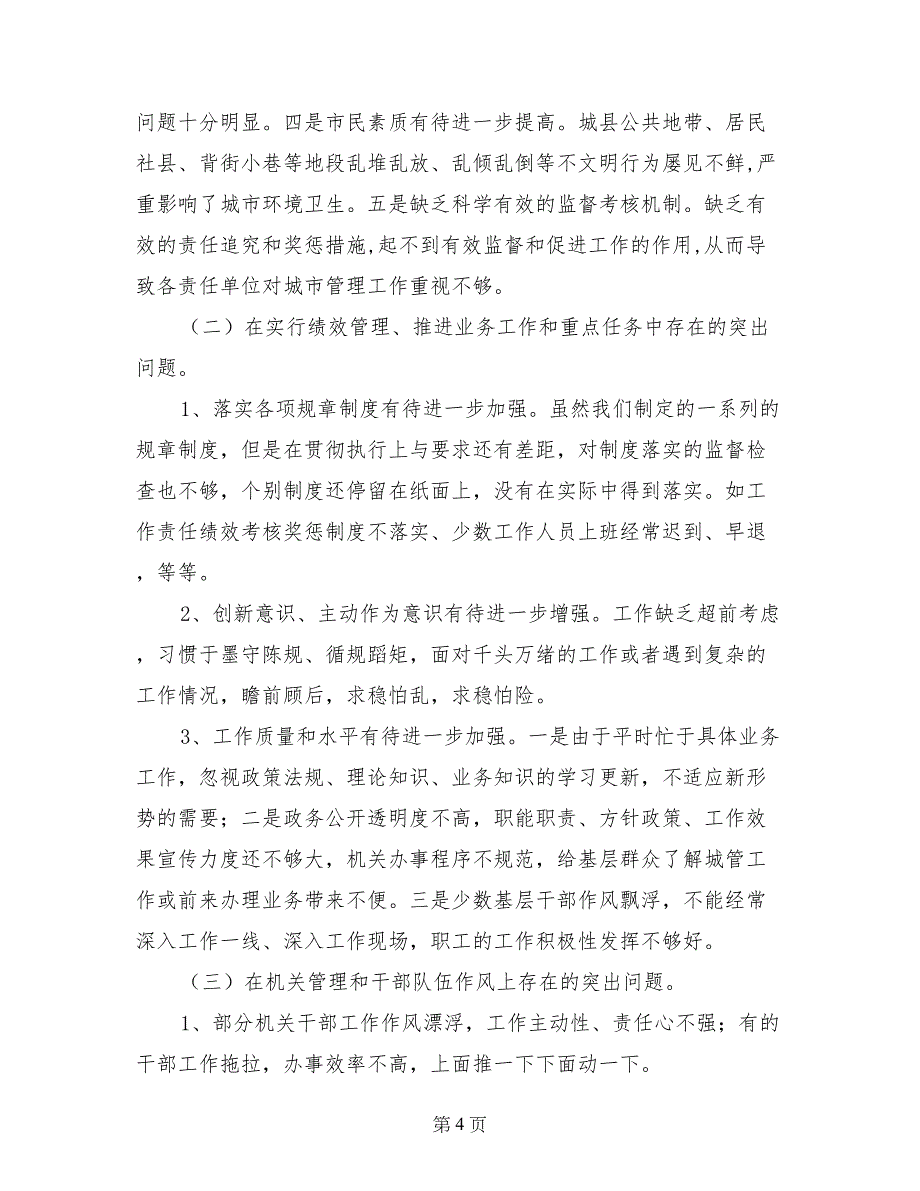 问题十分明显。四是市民素质有待进一步提高。城县公共地带、居民
社县、背街小巷等地段乱堆乱放、乱倾乱倒等不文明行为屡见不鲜,严
重影响了城市环境卫生。五是缺乏科学有效的监督考核机制。缺乏有
效的责任追究和奖惩措施,起不到有效监督和促进工作的作用,从而导
致各责任单位对城市管理工作重视不够。
（二）在实行绩效管理、推进业务工作和重点任务中存在的突出
问题。
1、落实各项规章制度有待进一步加强。虽然我们制定的一系列的
规章制度，但是在贯彻执行上与要求还有差距，对制度落实的监督检
查也不够，个别制度还停留在纸面上，没有在实际中得到落实。如工
作责任绩效考核奖惩制度不落实、少数工作人员上班经常迟到、早退
，等等。
2、创新意识、主动作为意识有待进一步增强。工作缺乏超前考虑
，习惯于墨守陈规、循规蹈矩，面对千头万绪的工作或者遇到复杂的
工作情况，瞻前顾后，求稳怕乱，求稳怕险。
3、工作质量和水平有待进一步加强。一是由于平时忙于具体业务
工作，忽视政策法规、理论知识、业务知识的学习更新，不适应新形
势的需要；二是政务公开透明度不高，职能职责、方针政策、工作效
果宣传力度还不够大，机关办事程序不规范，给基层群众了解城管工
作或前来办理业务带来不便。三是少数基层干部作风飘浮，不能经常
深入工作一线、深入工作现场，职工的工作积极性发挥不够好。
（三）在机关管理和干部队伍作风上存在的突出问题。
1、部分机关干部工作作风漂浮，工作主动性、责任心不强；有的
干部工作拖拉，办事效率不高，上面推一下下面动一下。
第 4 页